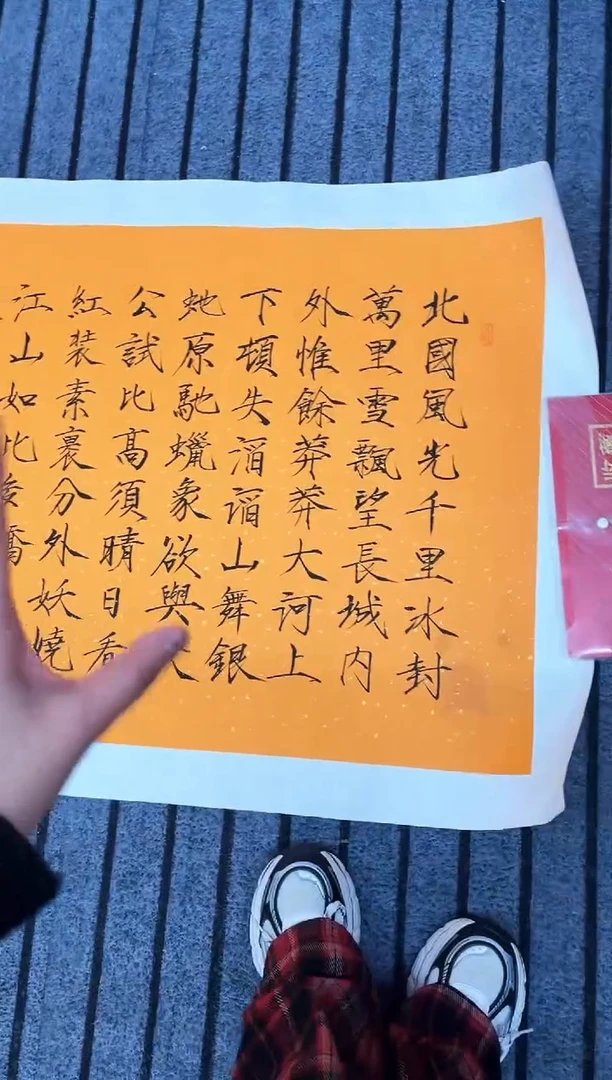 北國風光千里冰封
萬里雪飄望長城内
外惟餘莽莽大河上
下頓失滔滔山舞銀
虵原馳蠟象欲與
公試比高須晴日看
紅装素裹分外妖嬈
江山如此